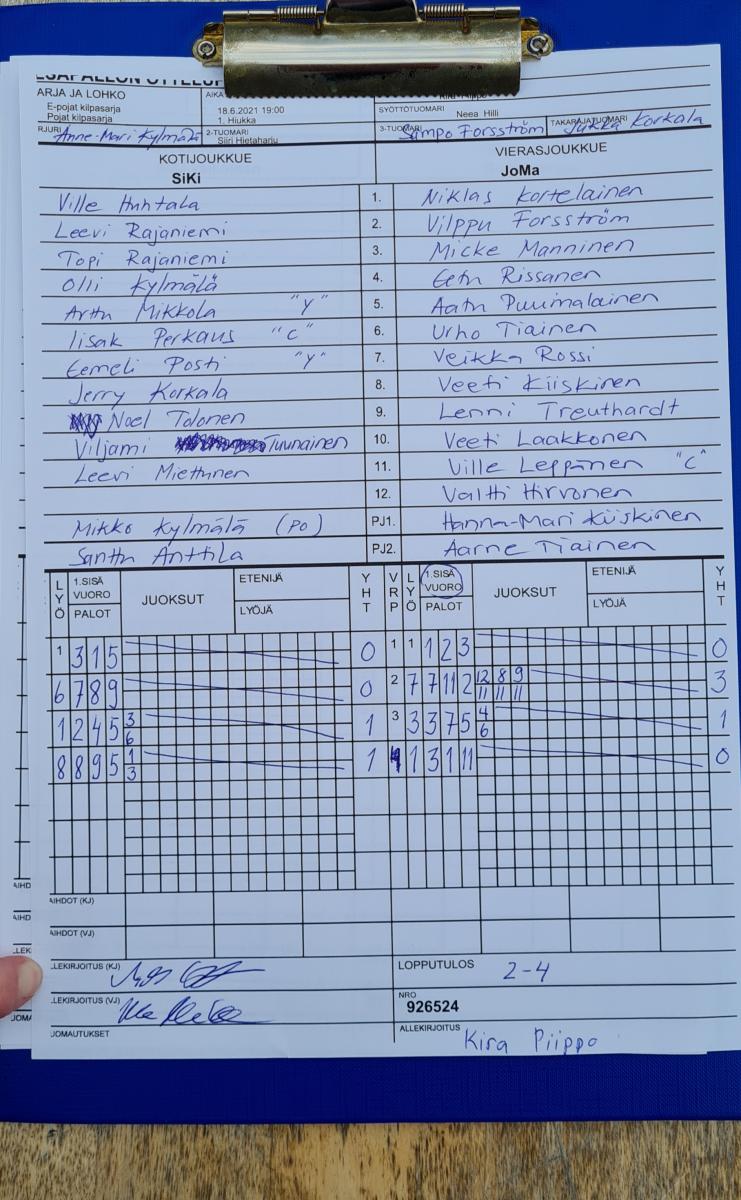 ARJA JA LOHKO
E-pojat kilpasarja
Pojat kilpasarja
18.6.2021 19:00
1. Hiukka
SYÖTTÖTUOMARI
Neea Hilli
RJURI Anne-Mari Kylmälä 2-TUOMARI Siiri Hietaharju 3-TUOMARI Sampo Forsström TAKARAJATUOMARI Jukka Korkala
KOTIJOUKKUE VIERASJOUKKUE
SiKi JoMa
Ville Huhtala 1. Niklas Kortelainen
Leevi Rajaniemi 2. Vilppu Forsström
Topi Rajaniemi 3. Micke Manninen
Olli Kylmälä 4. Eetu Rissanen
Arttu Mikkola "Y" 5. Aatu Puumalainen
Iisak Perkaus "C" 6. Urho Tiainen
Eemeli Posti "Y" 7. Veikka Rossi
Jerry Korkala 8. Veeti Kiiskinen
Noel Tolonen 9. Lenni Treuthardt
Viljami Tuunainen 10. Veeti Laakkonen
Leevi Miettunen 11. Ville Leppänen "C"
12. Valtti Hirvonen
Mikko Kylmälä (PO) PJ1. Hanna-Mari Kiiskinen
Santtu Anttila PJ2. Aarne Tiainen
LYÖ 1.SISÄ VUORO PALOT JUOKSUT ETENIJÄ LYÖJÄ YHT VRP LYÖ 1.SISÄ VUORO PALOT JUOKSUT ETENIJÄ LYÖJÄ YHT
1 3 1 5 0 1 1 1 2 3 0
6 7 8 9 0 2 7 7 11 2 12 8 9 3
11 11 11
1 2 4 5 3 1 3 3 3 7 5 4 1
6 6
8 8 9 5 1 1 4 1 3 1 11 0
3
AIHDOT (KJ)
AIHDOT (VJ)
LEKIRJOITUS (KJ) LOPPUTULOS 2-4
LEKIRJOITUS (VJ) NRO
926524
UOMAUTUKSET ALLEKIRJOITUS Kira Piippo